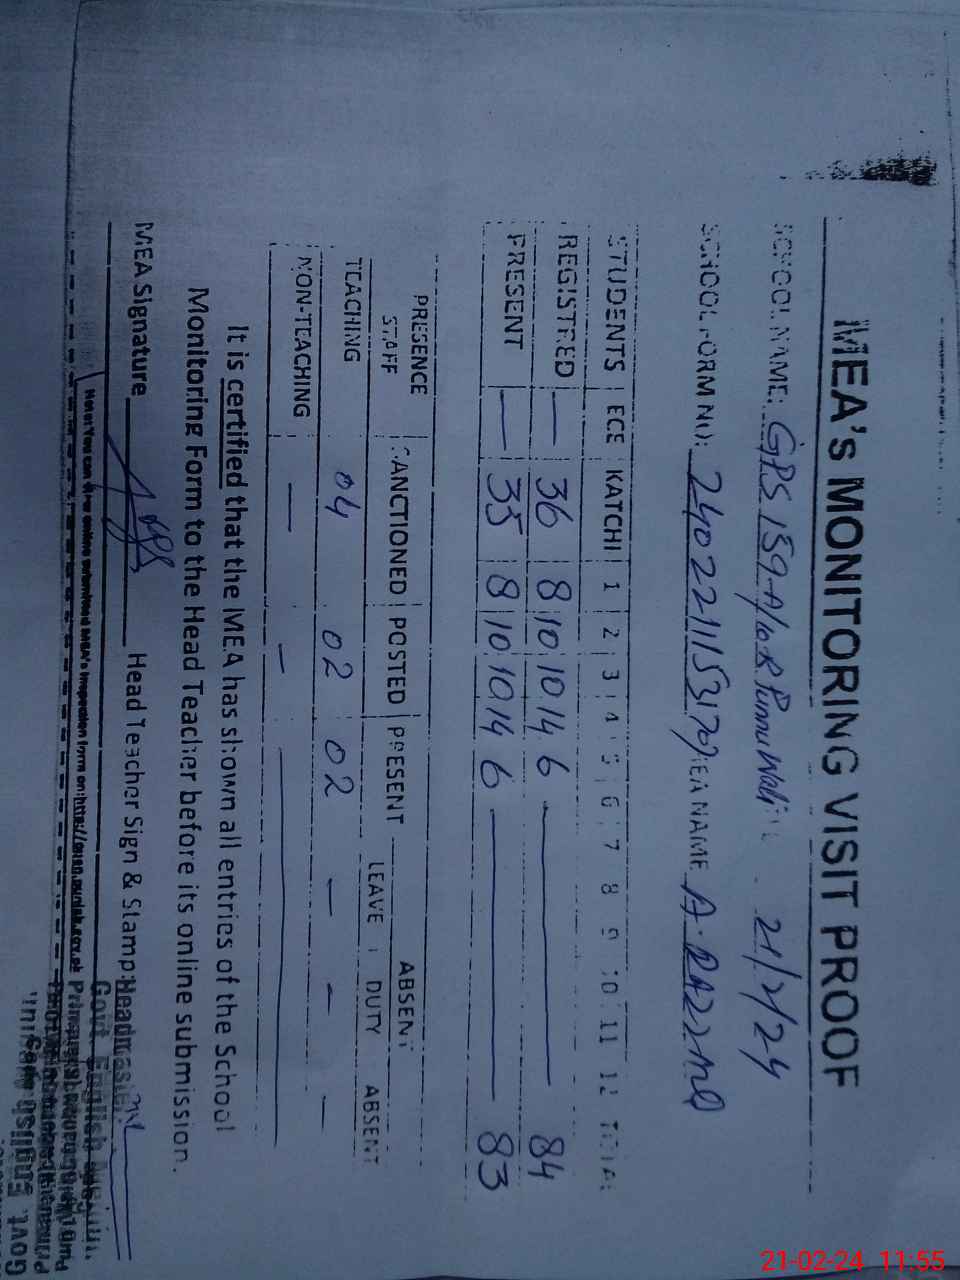 MEA's MONITORING VISIT PROOF
SCHOOL NAME: GPS 159-A/6-R 21/2/24
SCHOOL FORM NO: MEA NAME A.
STUDENTS ECE KATCHI 1 2 3 4 5 6 7 8 9 10 11 12 TOTAL
REGISTRED — 36 8 10 10 14 6 — 84
PRESENT — 35 8 10 10 14 6 — 83
PRESENCE SANCTIONED POSTED PRESENT ABSENT
STAFF LEAVE DUTY ABSENT
TEACHING 04 02 02 — — —
NON-TEACHING — —
It is certified that the MEA has shown all entries of the School
Monitoring Form to the Head Teacher before its online submission.
MEA Signature Head Teacher Sign & Stamp: Headmaster
Govt. English
Note: You can view online submitted MEA's inspection form on:
21-02-24 11:55